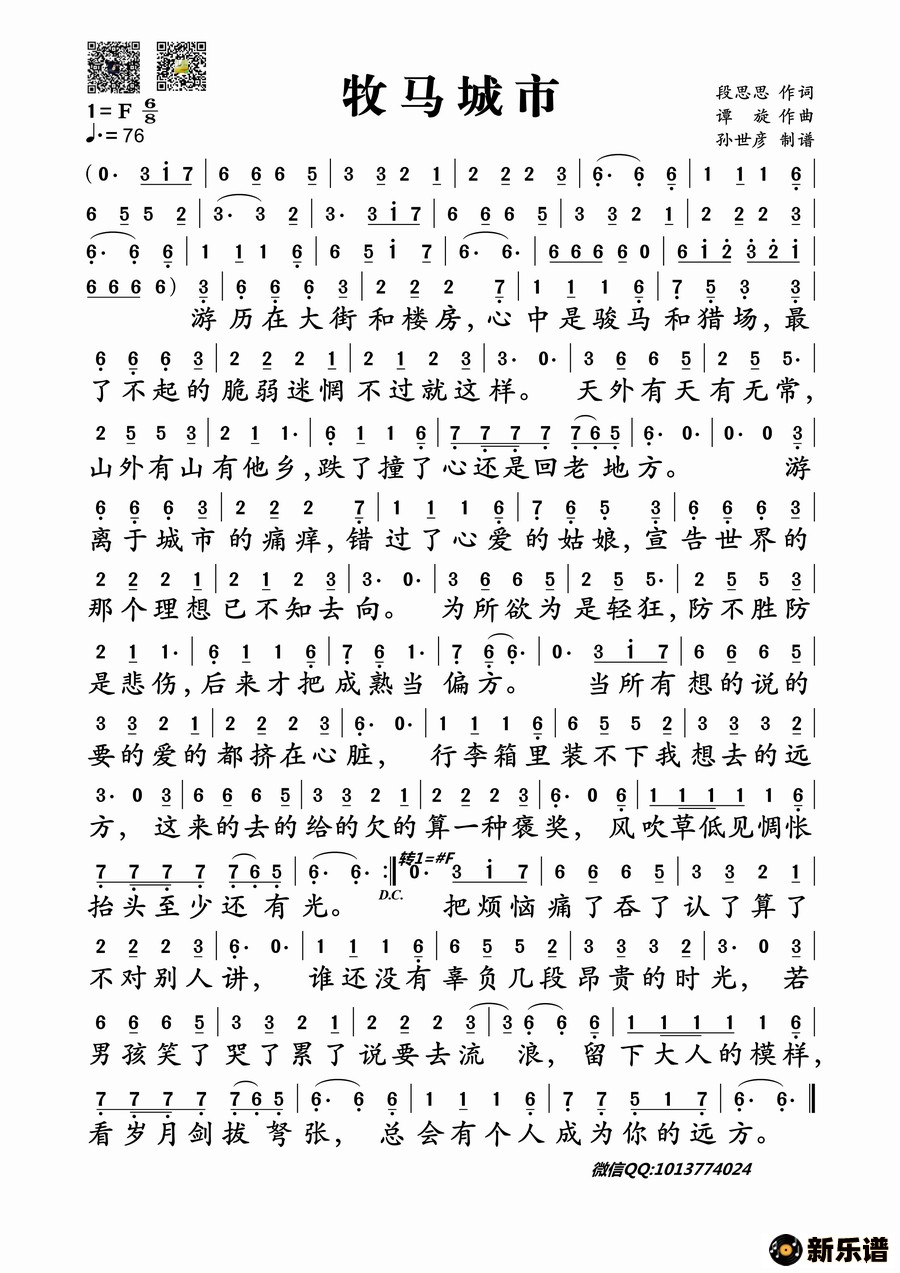 牧马城市
段思思 作词
谭 旋 作曲
孙世彦 制谱
1=F 6/8
♩.=76
(0· 3 i 7 | 6 6 6 5 | 3 3 2 1 | 2 2 2 3 | 6· 6 6 | 1 1 1 6 |
6 5 5 2 | 3· 3 2 | 3· 3 i 7 | 6 6 6 5 | 3 3 2 1 | 2 2 2 3 |
6· 6 6 | 1 1 1 6 | 6 5 i 7 | 6· 6· | 6 6 6 6 0 | 6 i 2 3 2 i |
6 6 6 6) 3 | 6 6 6 3 | 2 2 2 7 | 1 1 1 6 | 7 5 3 3 |
游历在大街和楼房,心中是骏马和猎场,最
6 6 6 3 | 2 2 2 1 | 2 1 2 3 | 3· 0· | 3 6 6 5 | 2 5 5· |
了不起的脆弱迷惘不过就这样。 天外有天有无常,
2 5 5 3 | 2 1 1· | 6 1 1 6 | 7 7 7 7 7 6 5 | 6· 0· | 0· 0 3 |
山外有山有他乡,跌了撞了心还是回老 地方。 游
6 6 6 3 | 2 2 2 7 | 1 1 1 6 | 7 6 5 3 | 6 6 6 3 |
离于城市的痛痒,错过了心爱的姑娘,宣告世界的
2 2 2 1 | 2 1 2 3 | 3· 0· | 3 6 6 5 | 2 5 5· | 2 5 5 3 |
那个理想已不知去向。 为所欲为是轻狂,防不胜防
2 1 1· | 6 1 1 6 | 7 6 1· | 7 6 6· | 0· 3 i 7 | 6 6 6 5 |
是悲伤,后来才把成熟当 偏方。 当所有想的说的
3 3 2 1 | 2 2 2 3 | 6· 0· | 1 1 1 6 | 6 5 5 2 | 3 3 3 2 |
要的爱的都挤在心脏, 行李箱里装不下我想去的远
3· 0 3 | 6 6 6 5 | 3 3 2 1 | 2 2 2 3 | 6· 0 6 | 1 1 1 1 1 6 |
方, 这来的去的给的欠的算一种褒奖, 风吹草低见惆怅
7 7 7 7 7 6 5 | 6· 6· :| 转1=#F 0· 3 i 7 | 6 6 6 5 | 3 3 2 1 |
D.C.
抬头至少还 有光。 把烦恼痛了吞了认了算了
2 2 2 3 | 6· 0· | 1 1 1 6 | 6 5 5 2 | 3 3 3 2 | 3· 0 3 |
不对别人讲, 谁还没有辜负几段昂贵的时光, 若
6 6 6 5 | 3 3 2 1 | 2 2 2 3 | 3 6 6 6 | 1 1 1 1 1 6 |
男孩笑了哭了累了说要去流 浪, 留下大人的模样,
7 7 7 7 7 6 5 | 6· 6 6 | 1 1 1 6 | 7 7 5 1 7 | 6· 6· ||
看岁月剑拔 弩张, 总会有个人成为你的远方。
微信QQ:1013774024
新乐谱